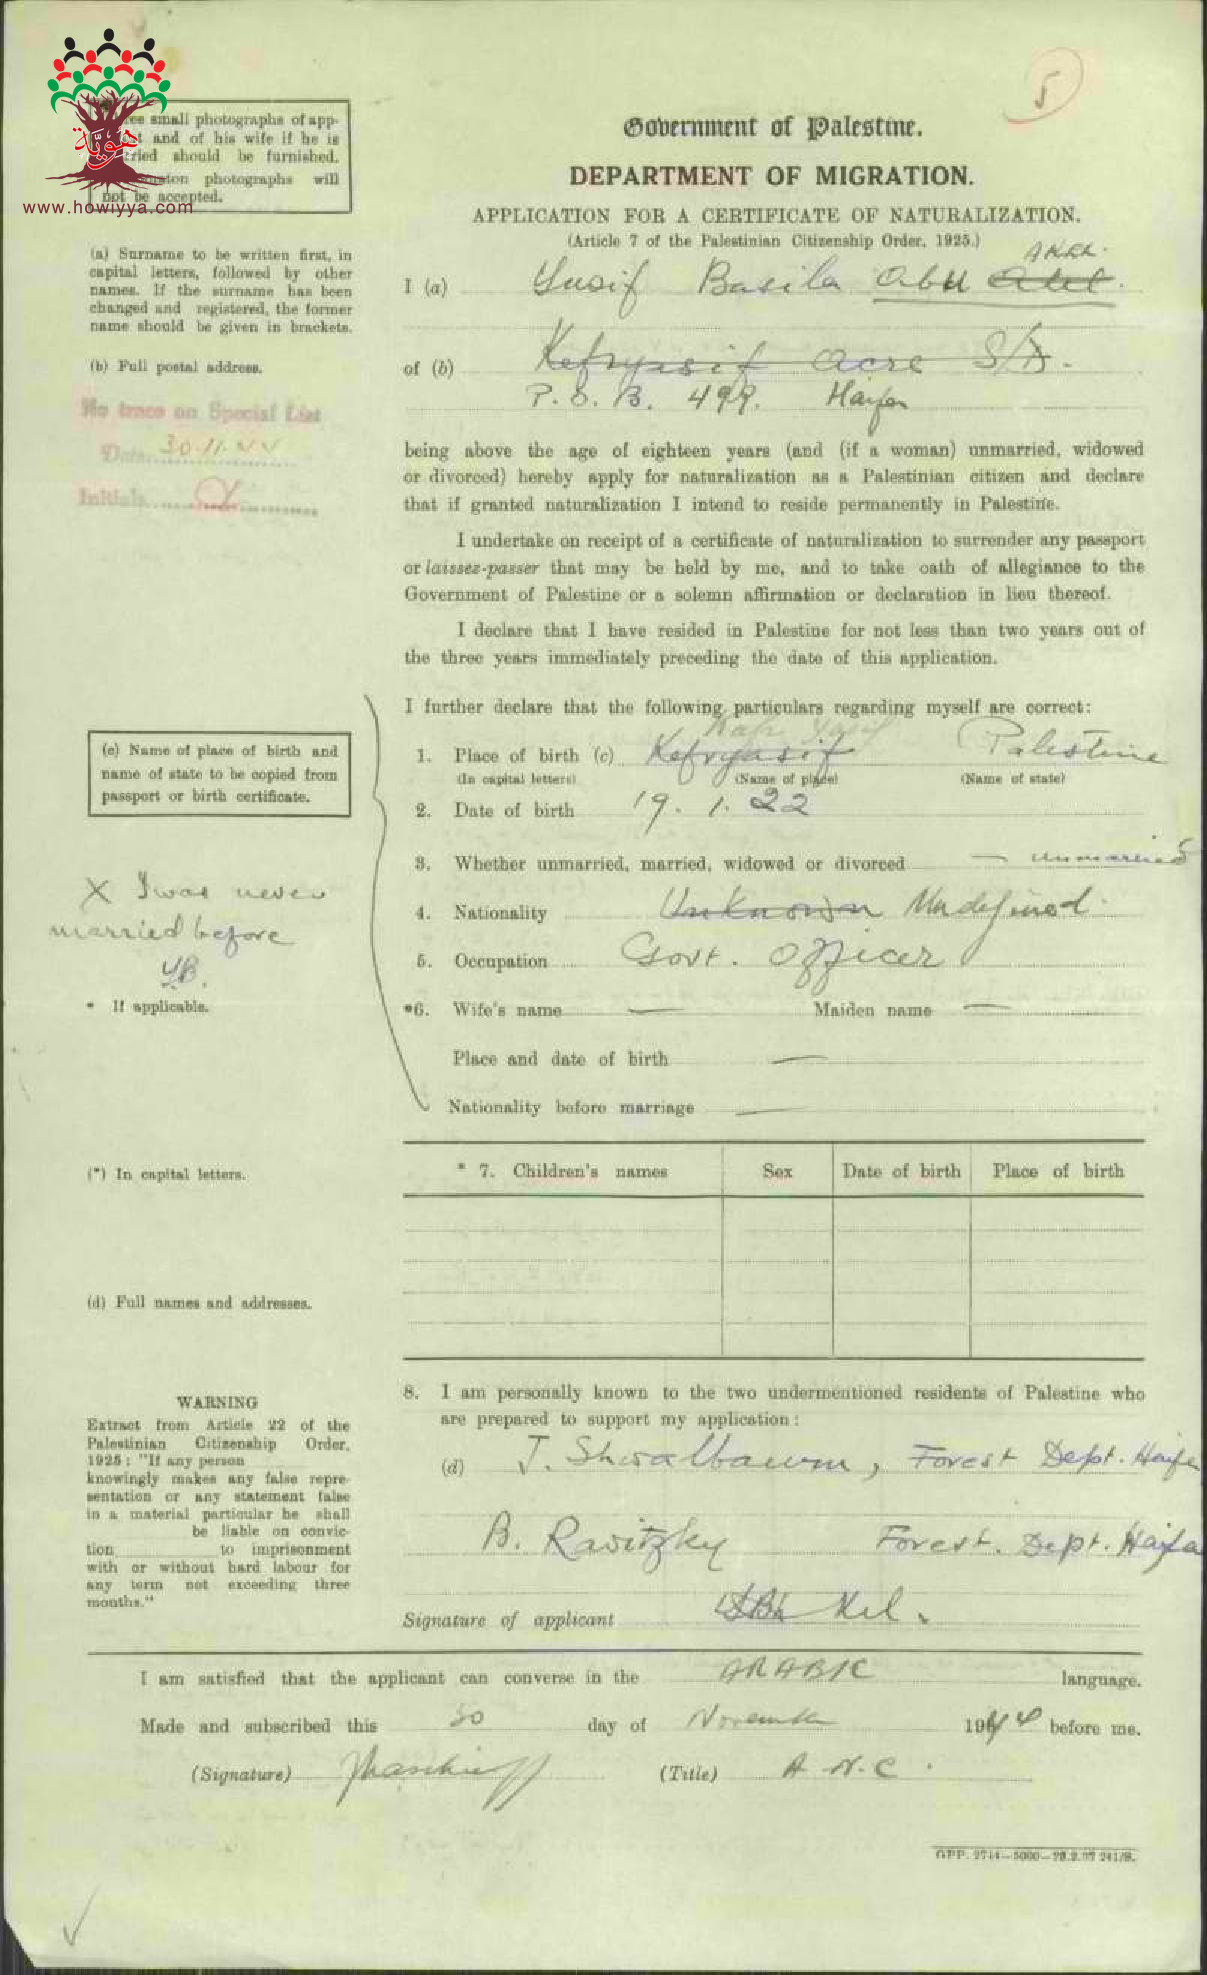 5
Government of Palestine.
DEPARTMENT OF MIGRATION.
APPLICATION FOR A CERTIFICATE OF NATURALIZATION.
(Article 7 of the Palestinian Citizenship Order, 1925.)
small photographs of app-
and of his wife if he is
should be furnished.
photographs will
not be accepted.
هوية
www.howiyya.com
(a) Surname to be written first, in
capital letters, followed by other
names. If the surname has been
changed and registered, the former
name should be given in brackets.
AKEL.
I (a) Yusif Basila Abu
(b) Full postal address.
of (b) Kefryasif Acre S/D.
P.O.B. 499. Haifa
No trace on Special List
Date 30.11.44
Initials
being above the age of eighteen years (and (if a woman) unmarried, widowed
or divorced) hereby apply for naturalization as a Palestinian citizen and declare
that if granted naturalization I intend to reside permanently in Palestine.
I undertake on receipt of a certificate of naturalization to surrender any passport
or laissez-passer that may be held by me, and to take oath of allegiance to the
Government of Palestine or a solemn affirmation or declaration in lieu thereof.
I declare that I have resided in Palestine for not less than two years out of
the three years immediately preceding the date of this application.
I further declare that the following particulars regarding myself are correct:
(c) Name of place of birth and
name of state to be copied from
passport or birth certificate.
Kafr Yasif
1. Place of birth (c) Kefryasif Palestine
(In capital letters) (Name of place) (Name of state)
2. Date of birth 19. 1. 22
3. Whether unmarried, married, widowed or divorced — unmarried
X I was never
married before
Y.B.
4. Nationality Unknown Undefined.
5. Occupation Govt. Officer
* If applicable.
*6. Wife's name — Maiden name —
Place and date of birth —
Nationality before marriage —
(*) In capital letters.
* 7. Children's names Sex Date of birth Place of birth
(d) Full names and addresses.
8. I am personally known to the two undermentioned residents of Palestine who
are prepared to support my application:
(d) J. Shwalbaum, Forest Dept. Haifa
B. Ravitzky Forest. Dept. Haifa
WARNING
Extract from Article 22 of the
Palestinian Citizenship Order,
1925: "If any person
knowingly makes any false repre-
sentation or any statement false
in a material particular he shall
be liable on convic-
tion to imprisonment
with or without hard labour for
any term not exceeding three
months."
Signature of applicant
I am satisfied that the applicant can converse in the ARABIC language.
Made and subscribed this 30 day of November 1944 before me.
(Signature) (Title) A.N.C.
GPP. 2714—5000—